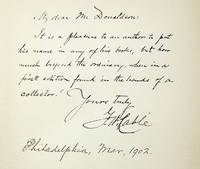 My dear Mr. Donaldson:
It is a pleasure to an author to put
his name in any of his books, but how
much beyond the ordinary, when in a
first edition found in the hands of a
collector.
Yours truly
G. W. Cable
Philadelphia, Mar, 1902.